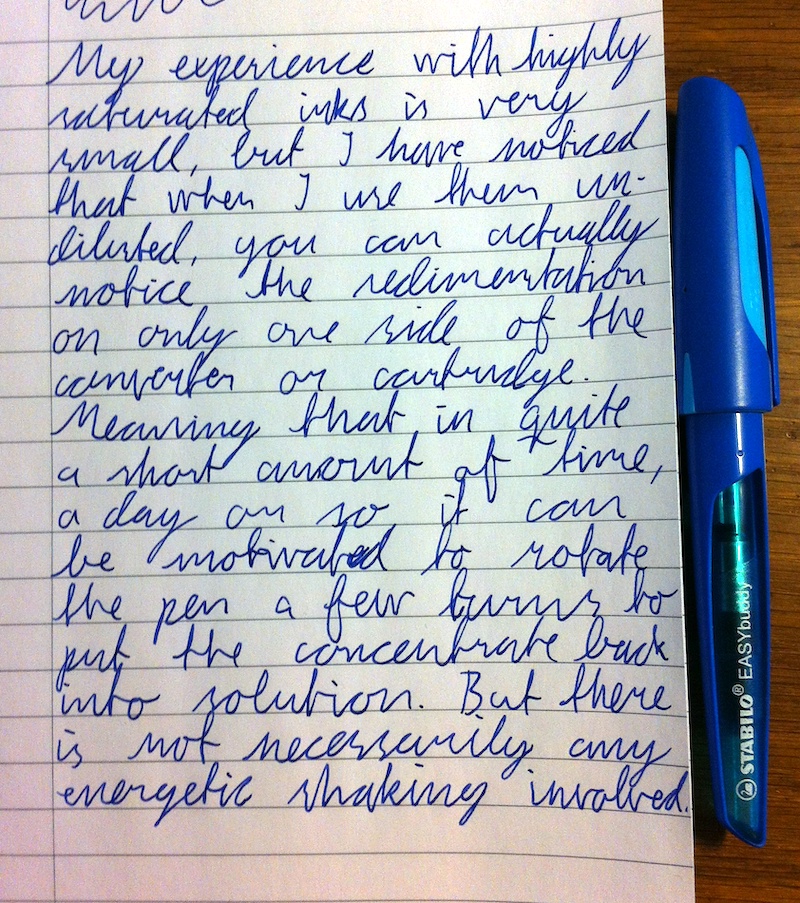 My experience with highly
saturated inks is very
small, but I have noticed
that when I use them un-
diluted, you can actually
notice the sedimentation
on only one side of the
converter or cartridge.
Meaning that in quite
a short amount of time,
a day or so it can
be motivated to rotate
the pen a few turns to
put the concentrate back
into solution. But there
is not necessarily any
energetic shaking involved.
STABILO® EASYbuddy